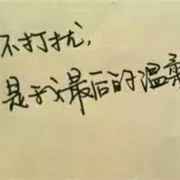 不打扰,
是我最后的温柔